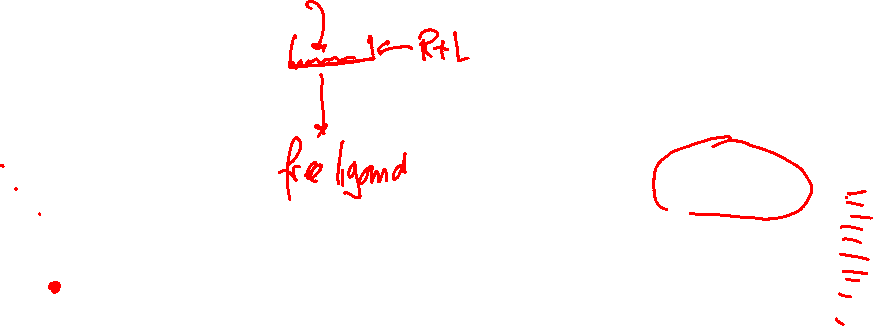 R+L
free ligand